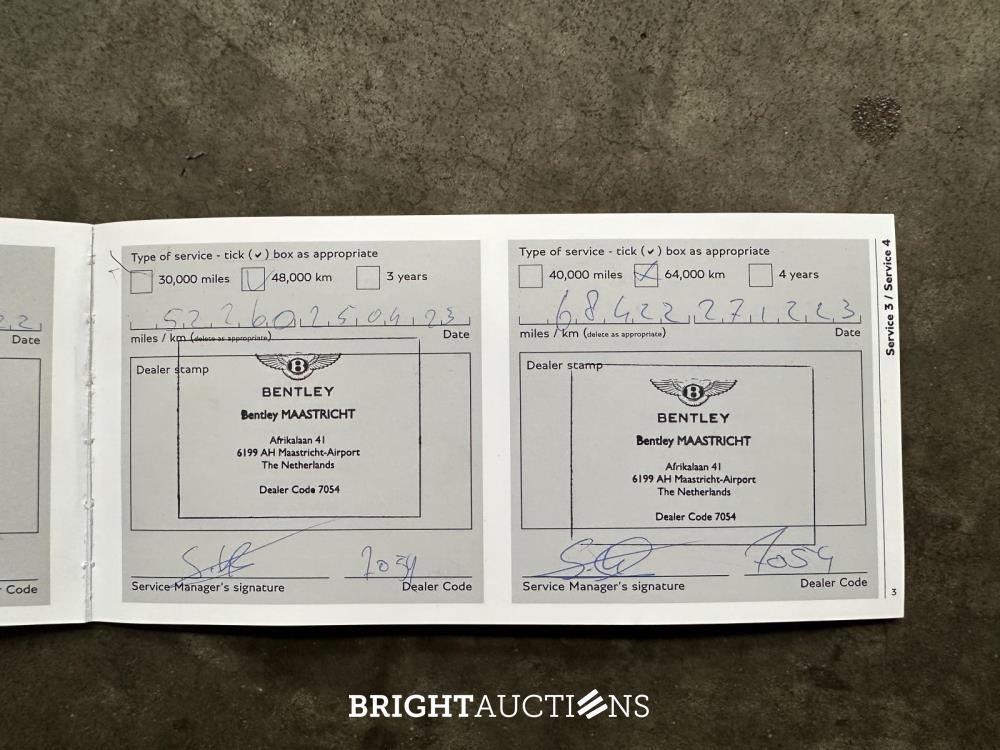 2 2
Date
Code
Type of service - tick (✓) box as appropriate
30,000 miles 48,000 km 3 years
5 2 2 6 0 2 5 0 4 2 3
miles / km (delete as appropriate) Date
Dealer stamp
B
BENTLEY
Bentley MAASTRICHT
Afrikalaan 41
6199 AH Maastricht-Airport
The Netherlands
Dealer Code 7054
7054
Service Manager's signature Dealer Code
Type of service - tick (✓) box as appropriate
40,000 miles 64,000 km 4 years
6 8 4 2 2 2 7 1 2 2 3
miles / km (delete as appropriate) Date
Dealer stamp
B
BENTLEY
Bentley MAASTRICHT
Afrikalaan 41
6199 AH Maastricht-Airport
The Netherlands
Dealer Code 7054
7054
Service Manager's signature Dealer Code
Service 3 / Service 4
3
BRIGHTAUCTIONS